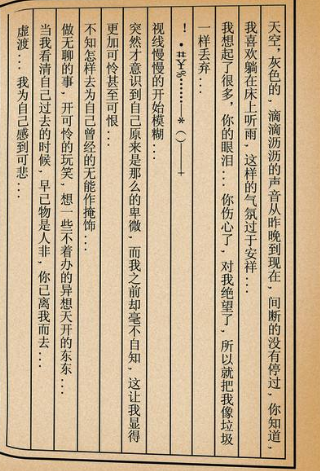 天空，灰色的，滴滴沥沥的声音从昨晚到现在，间断的没有停过，你知道，
我喜欢躺在床上听雨，这样的气氛过于安祥...
我想起了很多，你的眼泪...你伤心了，对我绝望了，所以就把我像垃圾
一样丢弃...
！·#￥%……—*（）—+
视线慢慢的开始模糊...
突然才意识到自己原来是那么的卑微，而我之前却毫不自知，这让我显得
更加可怜甚至可恨...
不知怎样去为自己曾经的无能作掩饰...
做无聊的事，开可怜的玩笑，想一些不着办的异想天开的东东...
当我看清自己过去的时候，早已物是人非，你已离我而去...
虚渡...我为自己感到可悲...